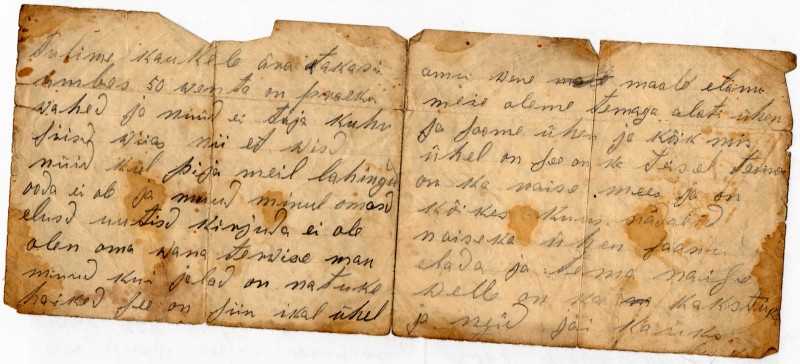 Tulime kaukele ära takasi
umbes 50 versta on praeku
wahed ja nüüd ei täja kuhu
siisd wias nii et wisd
nüüd kül pija meil lahingu
ooda ei ole ja muud minul omasd
elusd uutisd kirjuda ei ole
olen oma wana terwise man
muud kui jalad on natuke
haiked see on siin ikal ühel
oma wene maale elama
meie oleme temaga alati ühen
ja soome ühen ja kõik mis
ühel on see on ka teisel tema
on ka naise mees ja on
kõikes kuus nädalid
naiseka ühen saanud
elada ja tema naise
welle on ka kaks tükki
ja neid jäi kauks